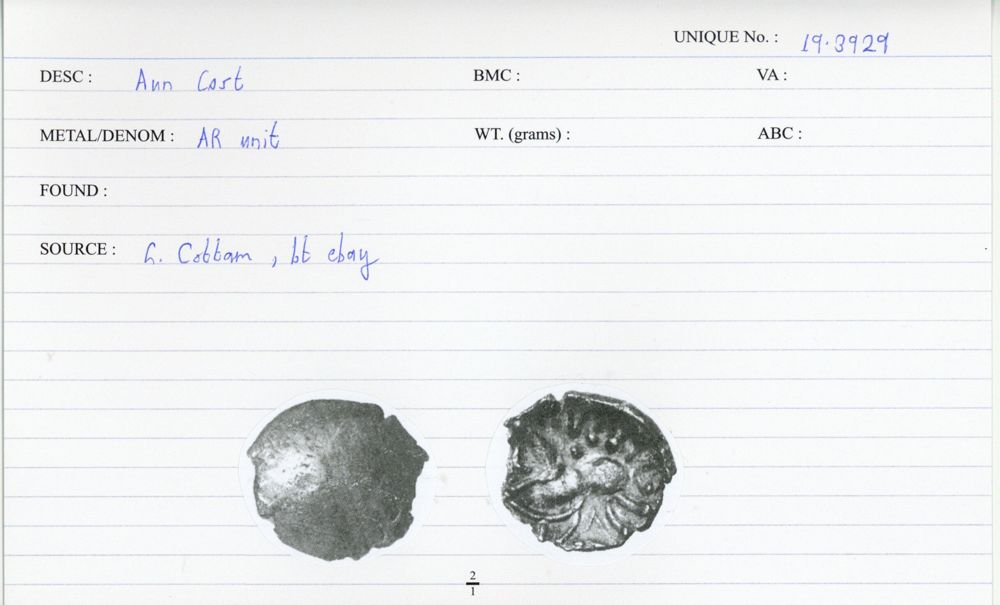 UNIQUE No. : 19.3929
DESC : Ann Cost BMC : VA :
METAL/DENOM : AR unit WT. (grams) : ABC :
FOUND :
SOURCE : G. Cottam , bt ebay
2
1